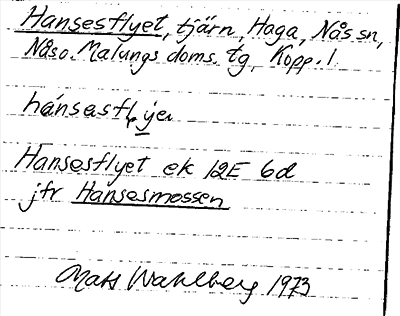 Hansesflyet, tjärn, Haga, Nås sn,
Nås o. Malungs doms. tg, Kopp. l.
hánsasflyen
Hansesflyet ek 12E 6d
jfr Hansesmossen
Mats Wahlberg 1973